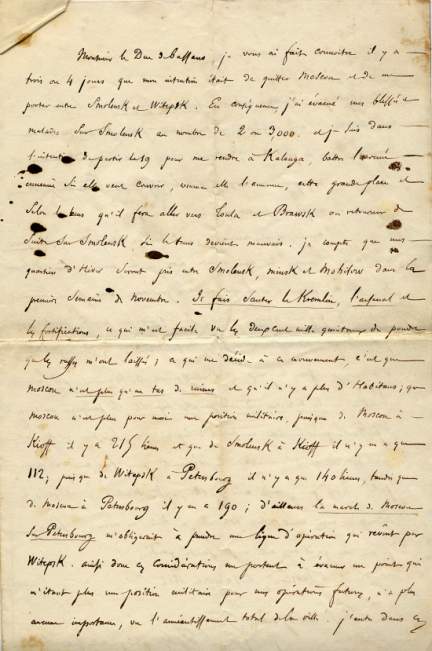 Monsieur le Duc de Bassano. je vous ai faite connoitre il y a
trois ou 4 jours que mon intention était de quitter Moscou et de me
porter entre Smolensk et Witepsk. En conséquence, j'ai évacué mes blessés et
malades sur Smolensk au nombre de 2 ou 3,000. et je suis dans
l'intention de partir le 19 pour me rendre à Kalouga, battre l'armée
ennemie si elle veut couvrir, comme elle l'annonce, cette grande place et
selon le tems qu'il fera aller vers Toula et Briansk ou retourner de
suite sur Smolensk, si le tems devient mauvais. je compte que mes
quartiers d'Hiver seront pris entre Smolensk, minsk et Mohilow dans la
première Semaine de Novembre. Je fais Sauter le Kremlin, l'arsenal et
les fortifications, ce qui m'est facile vu les deux cent mille quintaux de poudre
que les russes m'ont laissés; ce qui me décide à ce mouvement, c'est que
moscou n'est plus qu'un tas de ruines et qu'il n'y a plus d'Habitans; que
moscou n'est plus pour moi une position militaire, puisque de Moscou à
Kioff il y a 215 lieues et que de Smolensk à Kioff il n'y en a que
112; puisque de Witepsk à Petersbourg il n'y a que 140 lieues, tandis que
de moscou à Petersbourg il y en a 190; d'ailleurs la marche de Moscou
sur Petersbourg m'obligerait à prendre une ligne d'opération qui revînt par
Witepsk. ainsi donc ces Considérations me portent à évacuer un point qui
n'étant plus une position militaire pour mes opérations futures, n'a plus
aucune importance, vu l'anéantissement total de la ville. j'entre dans ces